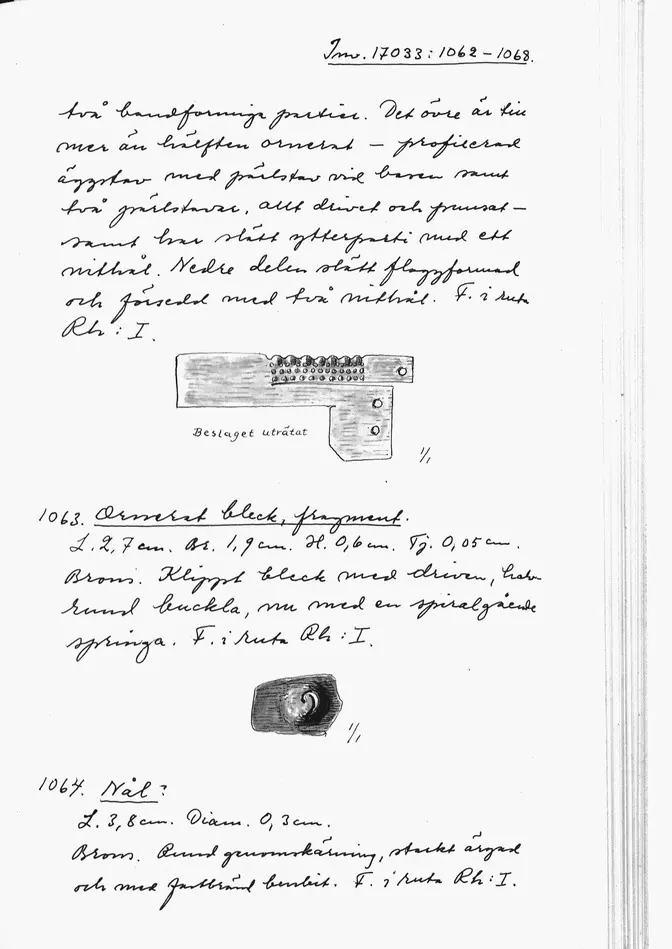 Inv. 17033:1062–1068.
två bandformiga partier. Det övre är till
mer än hälften ornerat – profilerad
äggstav med pärlstav vid basen samt
två pärlstavar, allt drivet och punsat –
samt har slätt ytterparti med ett
nithål. Nedre delen slätt flaggformad
och försedd med två nithål. F. i ruta
Rh: I.
Beslaget uträtat
1/1
1063. Ornerat bleck, fragment.
L. 2,7 cm. Br. 1,9 cm. H. 0,6 cm. Tj. 0,05 cm.
Brons. Klippt bleck med driven, halv-
rund buckla, nu med en spiralgående
springa. F. i ruta Rh: I.
1/1
1064. Nål?
L. 3,8 cm. Diam. 0,3 cm.
Brons. Rund genomskärning, starkt ärgad
och med fastbränd benbit. F. i ruta Rh: I.